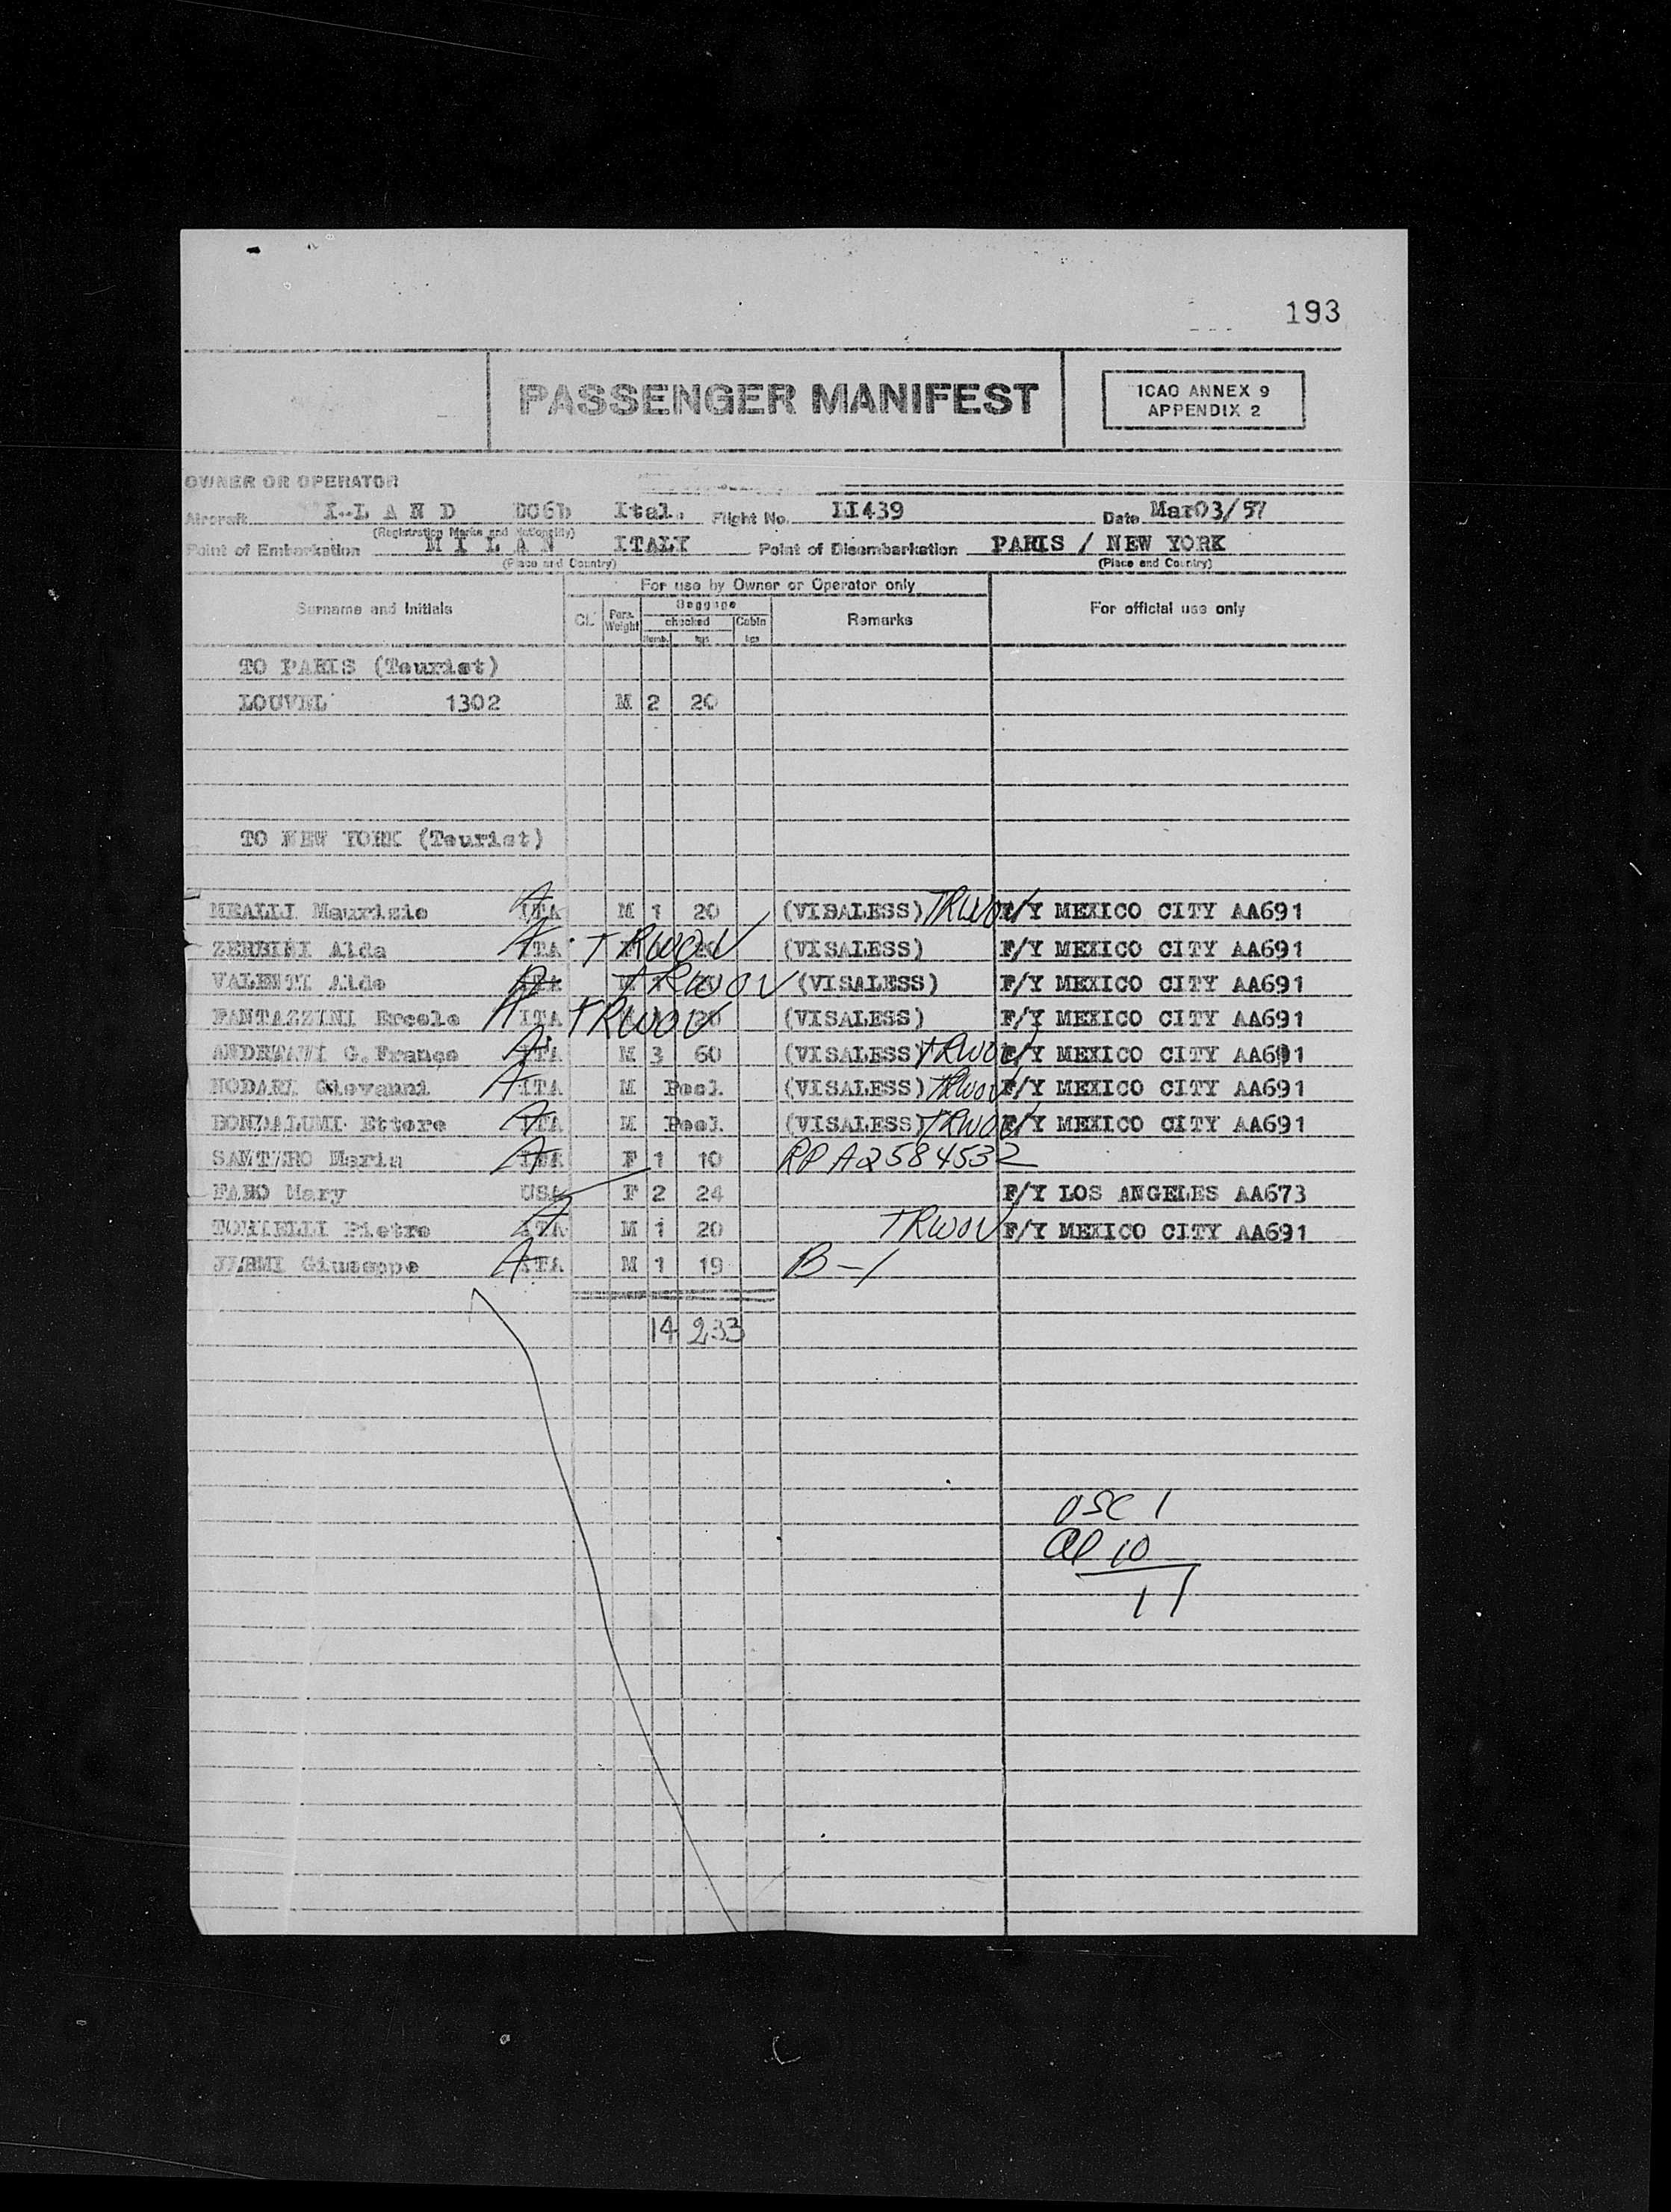 193
PASSENGER MANIFEST
ICAO ANNEX 9
APPENDIX 2
OWNER OR OPERATOR
Aircraft I-L A N D DC6b Ital. Flight No. LI439 Date Mar03/57
(Registration Marks and Nationality)
Point of Embarkation M I L A N ITALY Point of Disembarkation PARIS / NEW YORK
(Place and Country) (Place and Country)
For use by Owner or Operator only
Surname and Initials Cl. Pers. Weight Baggage checked Cabin Remarks For official use only
Numb. kgs kgs
TO PARIS (Tourist)
LOUVEL 1302 M 2 20
TO NEW YORK (Tourist)
MEALLI Maurizio A ITA M 1 20 (VISALESS) TRWOV F/Y MEXICO CITY AA691
ZERBINI Alda A ITA TRWOV (VISALESS) F/Y MEXICO CITY AA691
VALENTI Aldo A ITA TRWOV (VISALESS) F/Y MEXICO CITY AA691
FANTAZZINI Ercole A ITA TRWOV (VISALESS) F/Y MEXICO CITY AA691
G.Franco A ITA M 3 60 (VISALESS) TRWOV F/Y MEXICO CITY AA691
NODARI Giovanni A ITA M Pool. (VISALESS) TRWOV F/Y MEXICO CITY AA691
BONDALUMI Ettore A ITA M Pool. (VISALESS) TRWOV F/Y MEXICO CITY AA691
Maria A ITA F 1 10 RP A2584532
FABO Mary USA F 2 24 F/Y LOS ANGELES AA673
Pietro A ITA M 1 20 TRWOV F/Y MEXICO CITY AA691
Giuseppe A ITA M 1 19 B-1
14 233
USC 1
AP 10
11